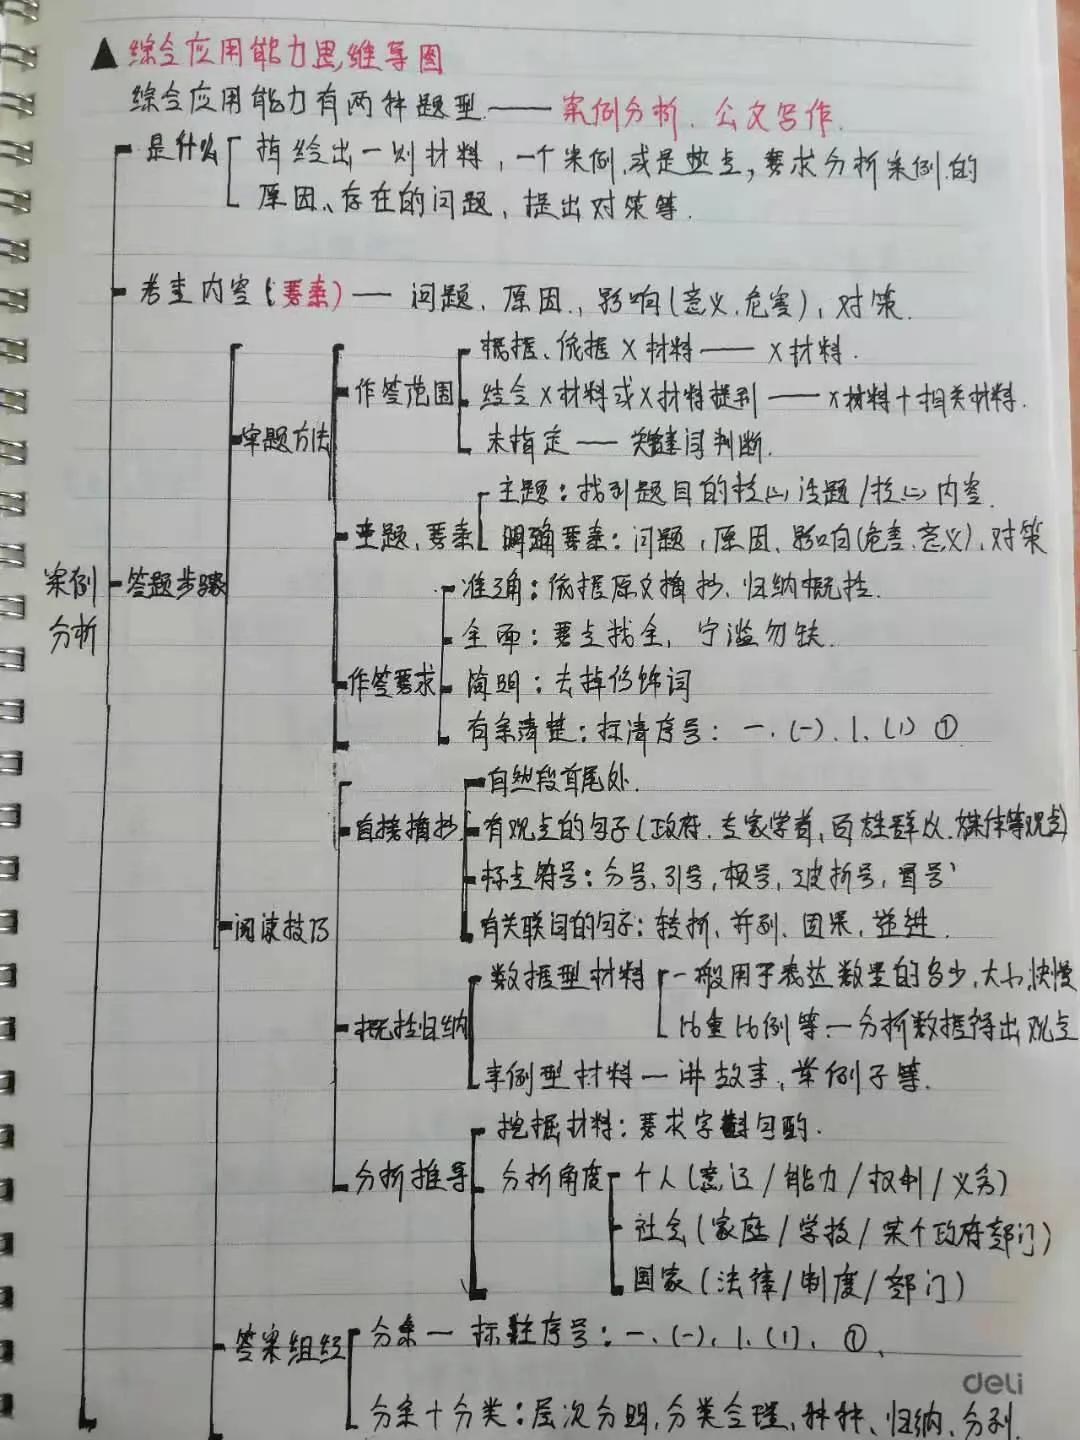 ▲ 综合应用能力思维导图
综合应用能力有两种题型 —— 案例分析、公文写作.
是什么
指给出一则材料,一个案例,或是热点,要求分析案例的
原因、存在的问题,提出对策等.
考查内容(要素) — 问题、原因、影响(意义、危害),对策.
案例分析
答题步骤
审题方法
作答范围
根据、依据X材料 —— X材料.
结合X材料或X材料提到 —— X材料+相关材料.
未指定 —— 关键词判断.
主题,要素
主题:找到题目的核心话题/核心内容.
明确要素:问题,原因、影响(危害、意义),对策
作答要求
准确:依据原文摘抄、归纳概括.
全面:要点找全,宁滥勿缺.
简明:去掉修饰词
有条清楚:标清序号:一、(一)、1、(1) ①
阅读技巧
直接摘抄
自然段首尾处.
有观点的句子(政府、专家学者,百姓群众、媒体等观点)
标点符号:分号、引号,顿号,破折号,冒号
有关联词的句子:转折、并列、因果,递进.
概括归纳
数据型材料
一般用于表达数量的多少,大小,快慢
比重比例等—分析数据得出观点
事例型材料 — 讲故事,举例子等.
分析推导
挖掘材料:要求字斟句酌.
分析角度
个人(意识/能力/权利/义务)
社会(家庭/学校/某个政府部门)
国家(法律/制度/部门)
答案组织
分条 — 标注序号:一、(一)、1、(1)、①、
分条+分类:层次分明,分类合理,种种、归纳、分列.
deli